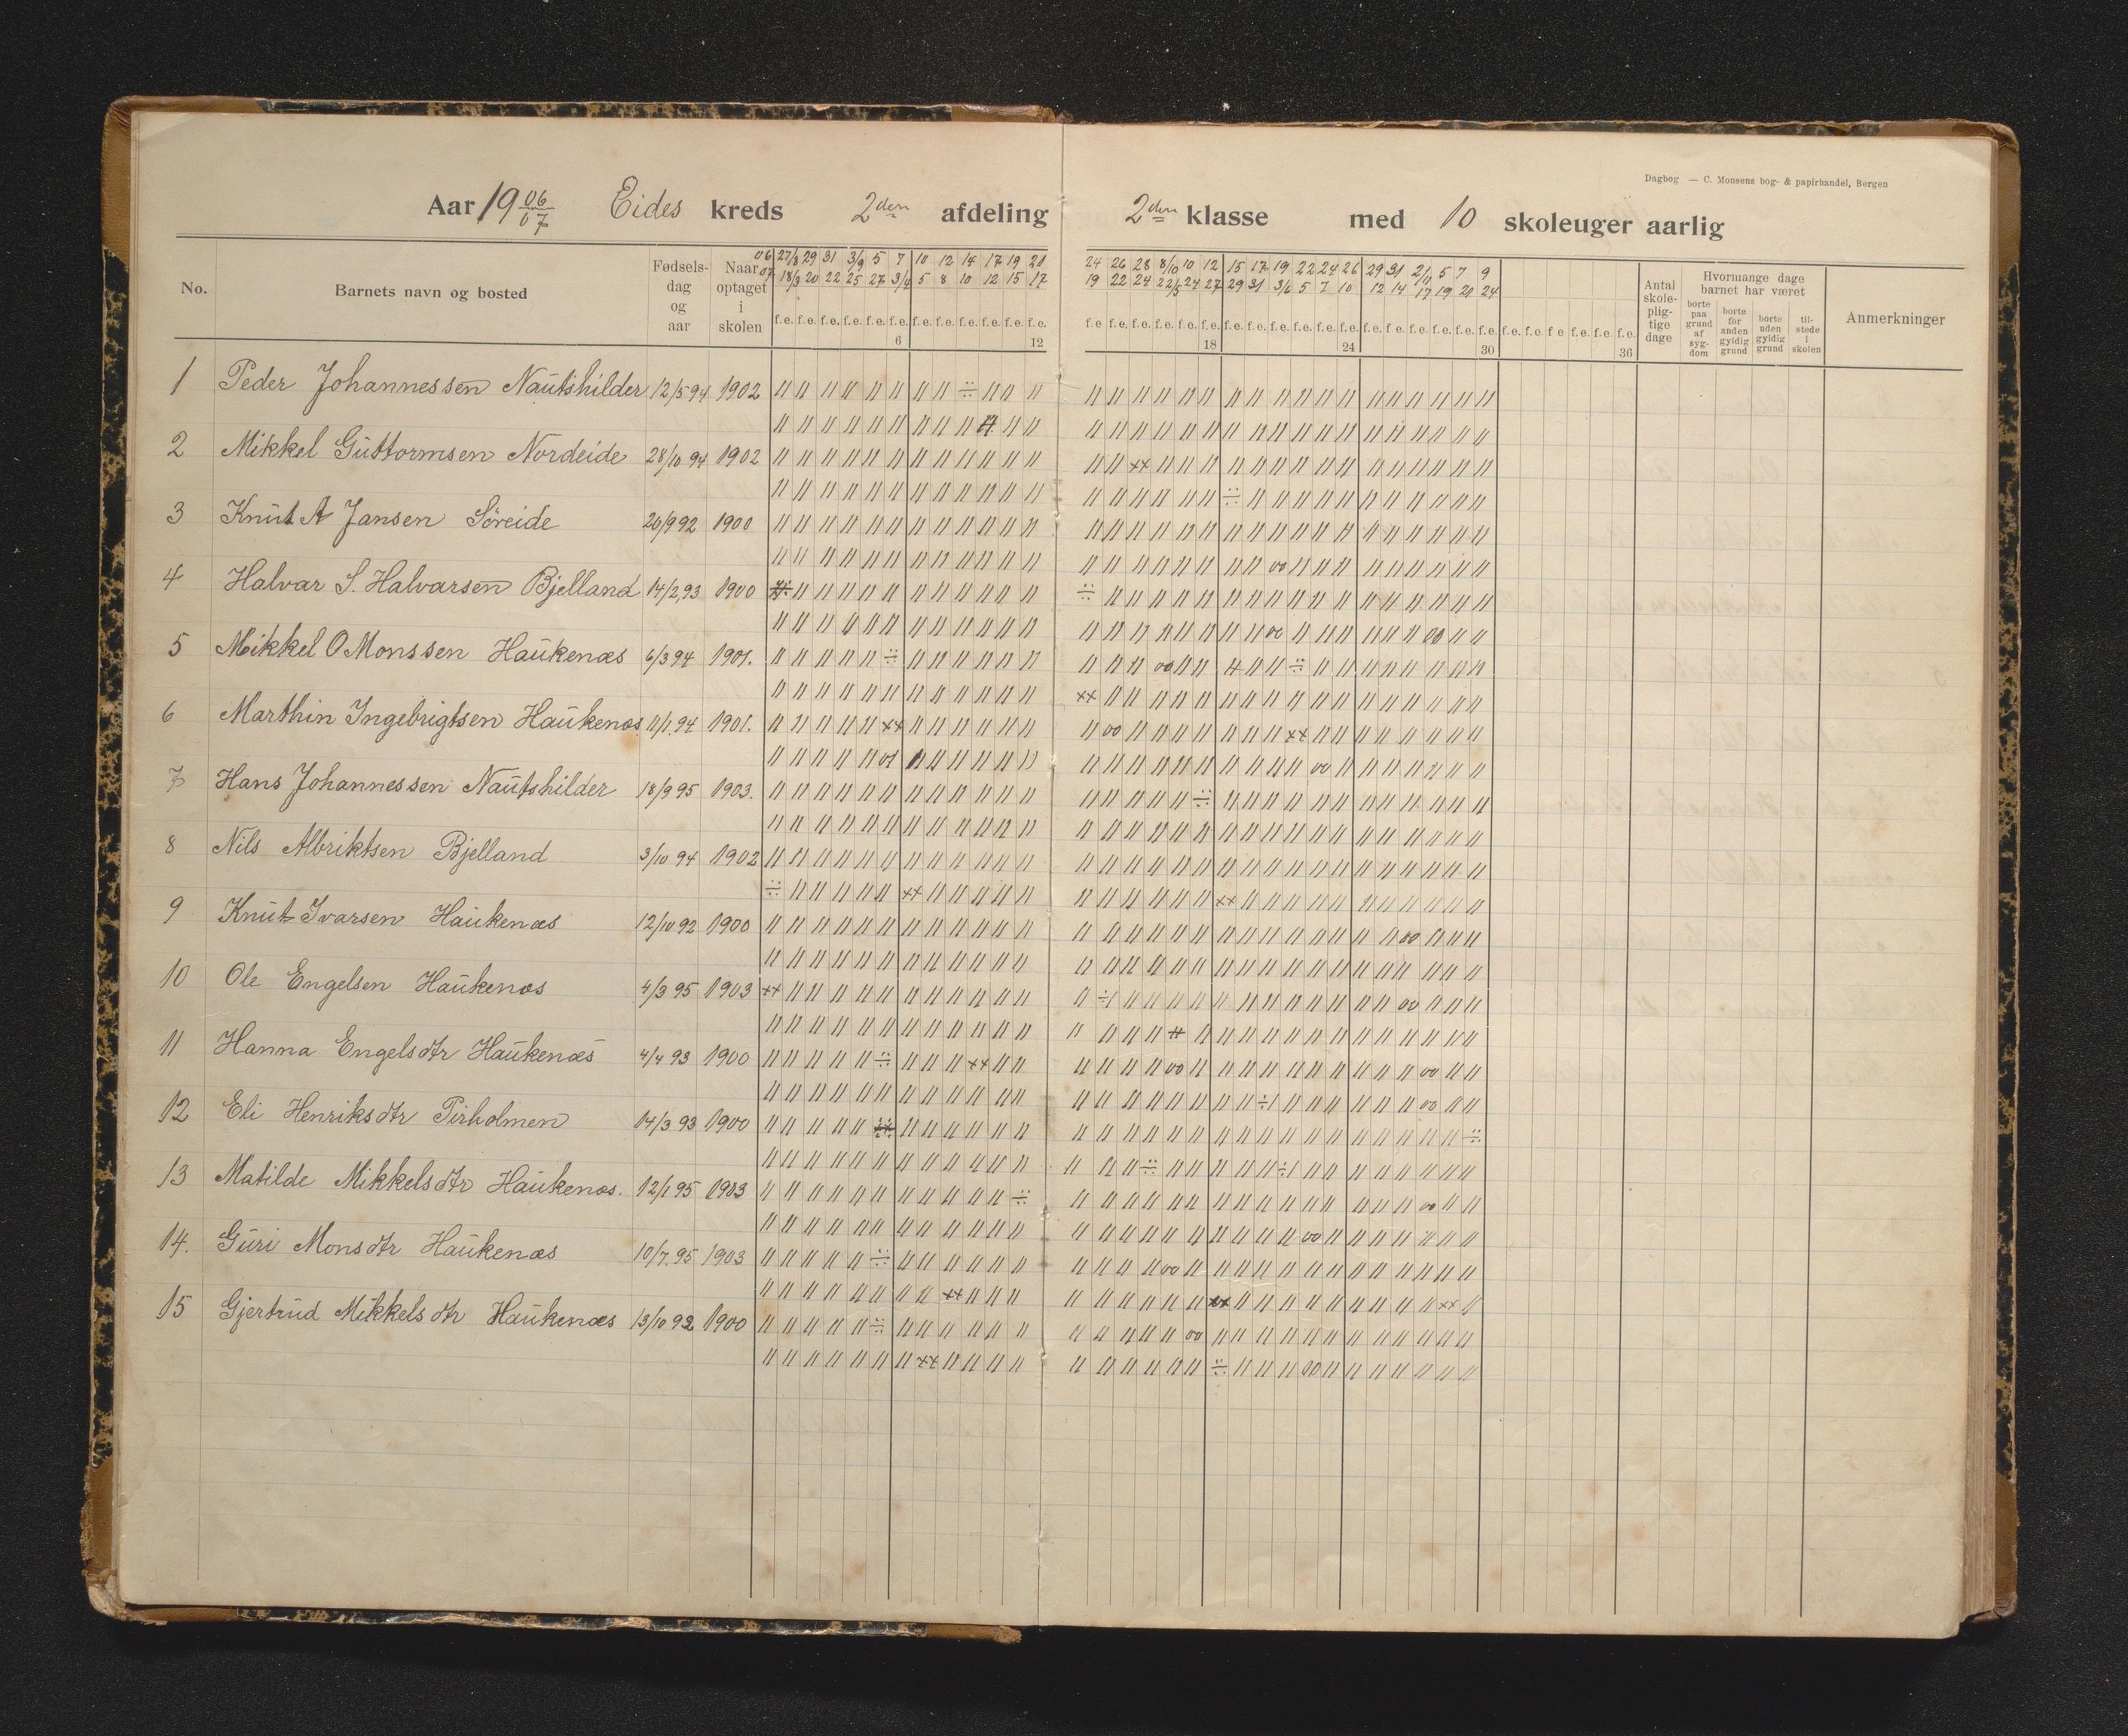 Dagbog — C. Monsens bog- & papirhandel, Bergen
Aar 1906/07 Eides kreds 2den afdeling 2den klasse med 10 skoleuger aarlig
No. Barnets navn og bosted Fødsels-dag og aar Naar optaget i skolen
06 27/8 29 31 3/9 5 7 10 12 14 17 19 21 24 26 28 8/10 10 12 15 17 19 22 24 26 29 31 2/11 5 7 9
07 18/3 20 22 25 27 3/4 5 8 10 12 15 17 19 22 24 22/5 24 27 29 31 3/6 5 7 10 12 14 17 19 21 24
f.e. f.e. f.e. f.e. f.e. f.e. f.e. f.e. f.e. f.e. f.e. f.e. f.e f.e. f.e. f.e. f.e. f.e. f.e. f.e. f.e. f.e. f.e. f.e. f.e. f.e. f.e. f.e. f.e. f.e. f.e. f.e. f e f.e. f.e. f.e.
6 12 18 24 30 36
Antal skole-plig-tige dage
Hvormange dage barnet har været
borte paa grund af syg-dom
borte for anden gyldig grund
borte uden gyldig grund
til-stede i skolen
Anmerkninger
1 Peder Johannessen Nautshilder 12/5 94 1902
2 Mikkel Guttormsen Nordeide 28/10 94 1902
3 Knut A Jansen Söreide 20/9 92 1900
4 Halvar S. Halvarsen Bjelland 14/2 93 1900
5 Mikkel O Monssen Haukenæs 6/3 94 1901.
6 Marthin Ingebrigtsen Haukenæs 11/1 94 1901.
7 Hans Johannessen Nautshilder 18/9 95 1903.
8 Nils Albriktsen Bjelland 3/10 94 1902
9 Knut Ivarsen Haukenæs 12/10 92 1900
10 Ole Engelsen Haukenæs 4/3 95 1903
11 Hanna Engelsdtr Haukenæs 4/4 93 1900
12 Eli Henriksdtr Pirholmen 14/3 93 1900
13 Matilde Mikkelsdtr Haukenæs. 12/1 95 1903
14. Guri Monsdtr Haukenæs 10/7 95 1903
15 Gjertrud Mikkelsdtr Haukenæs 13/10 92 1900